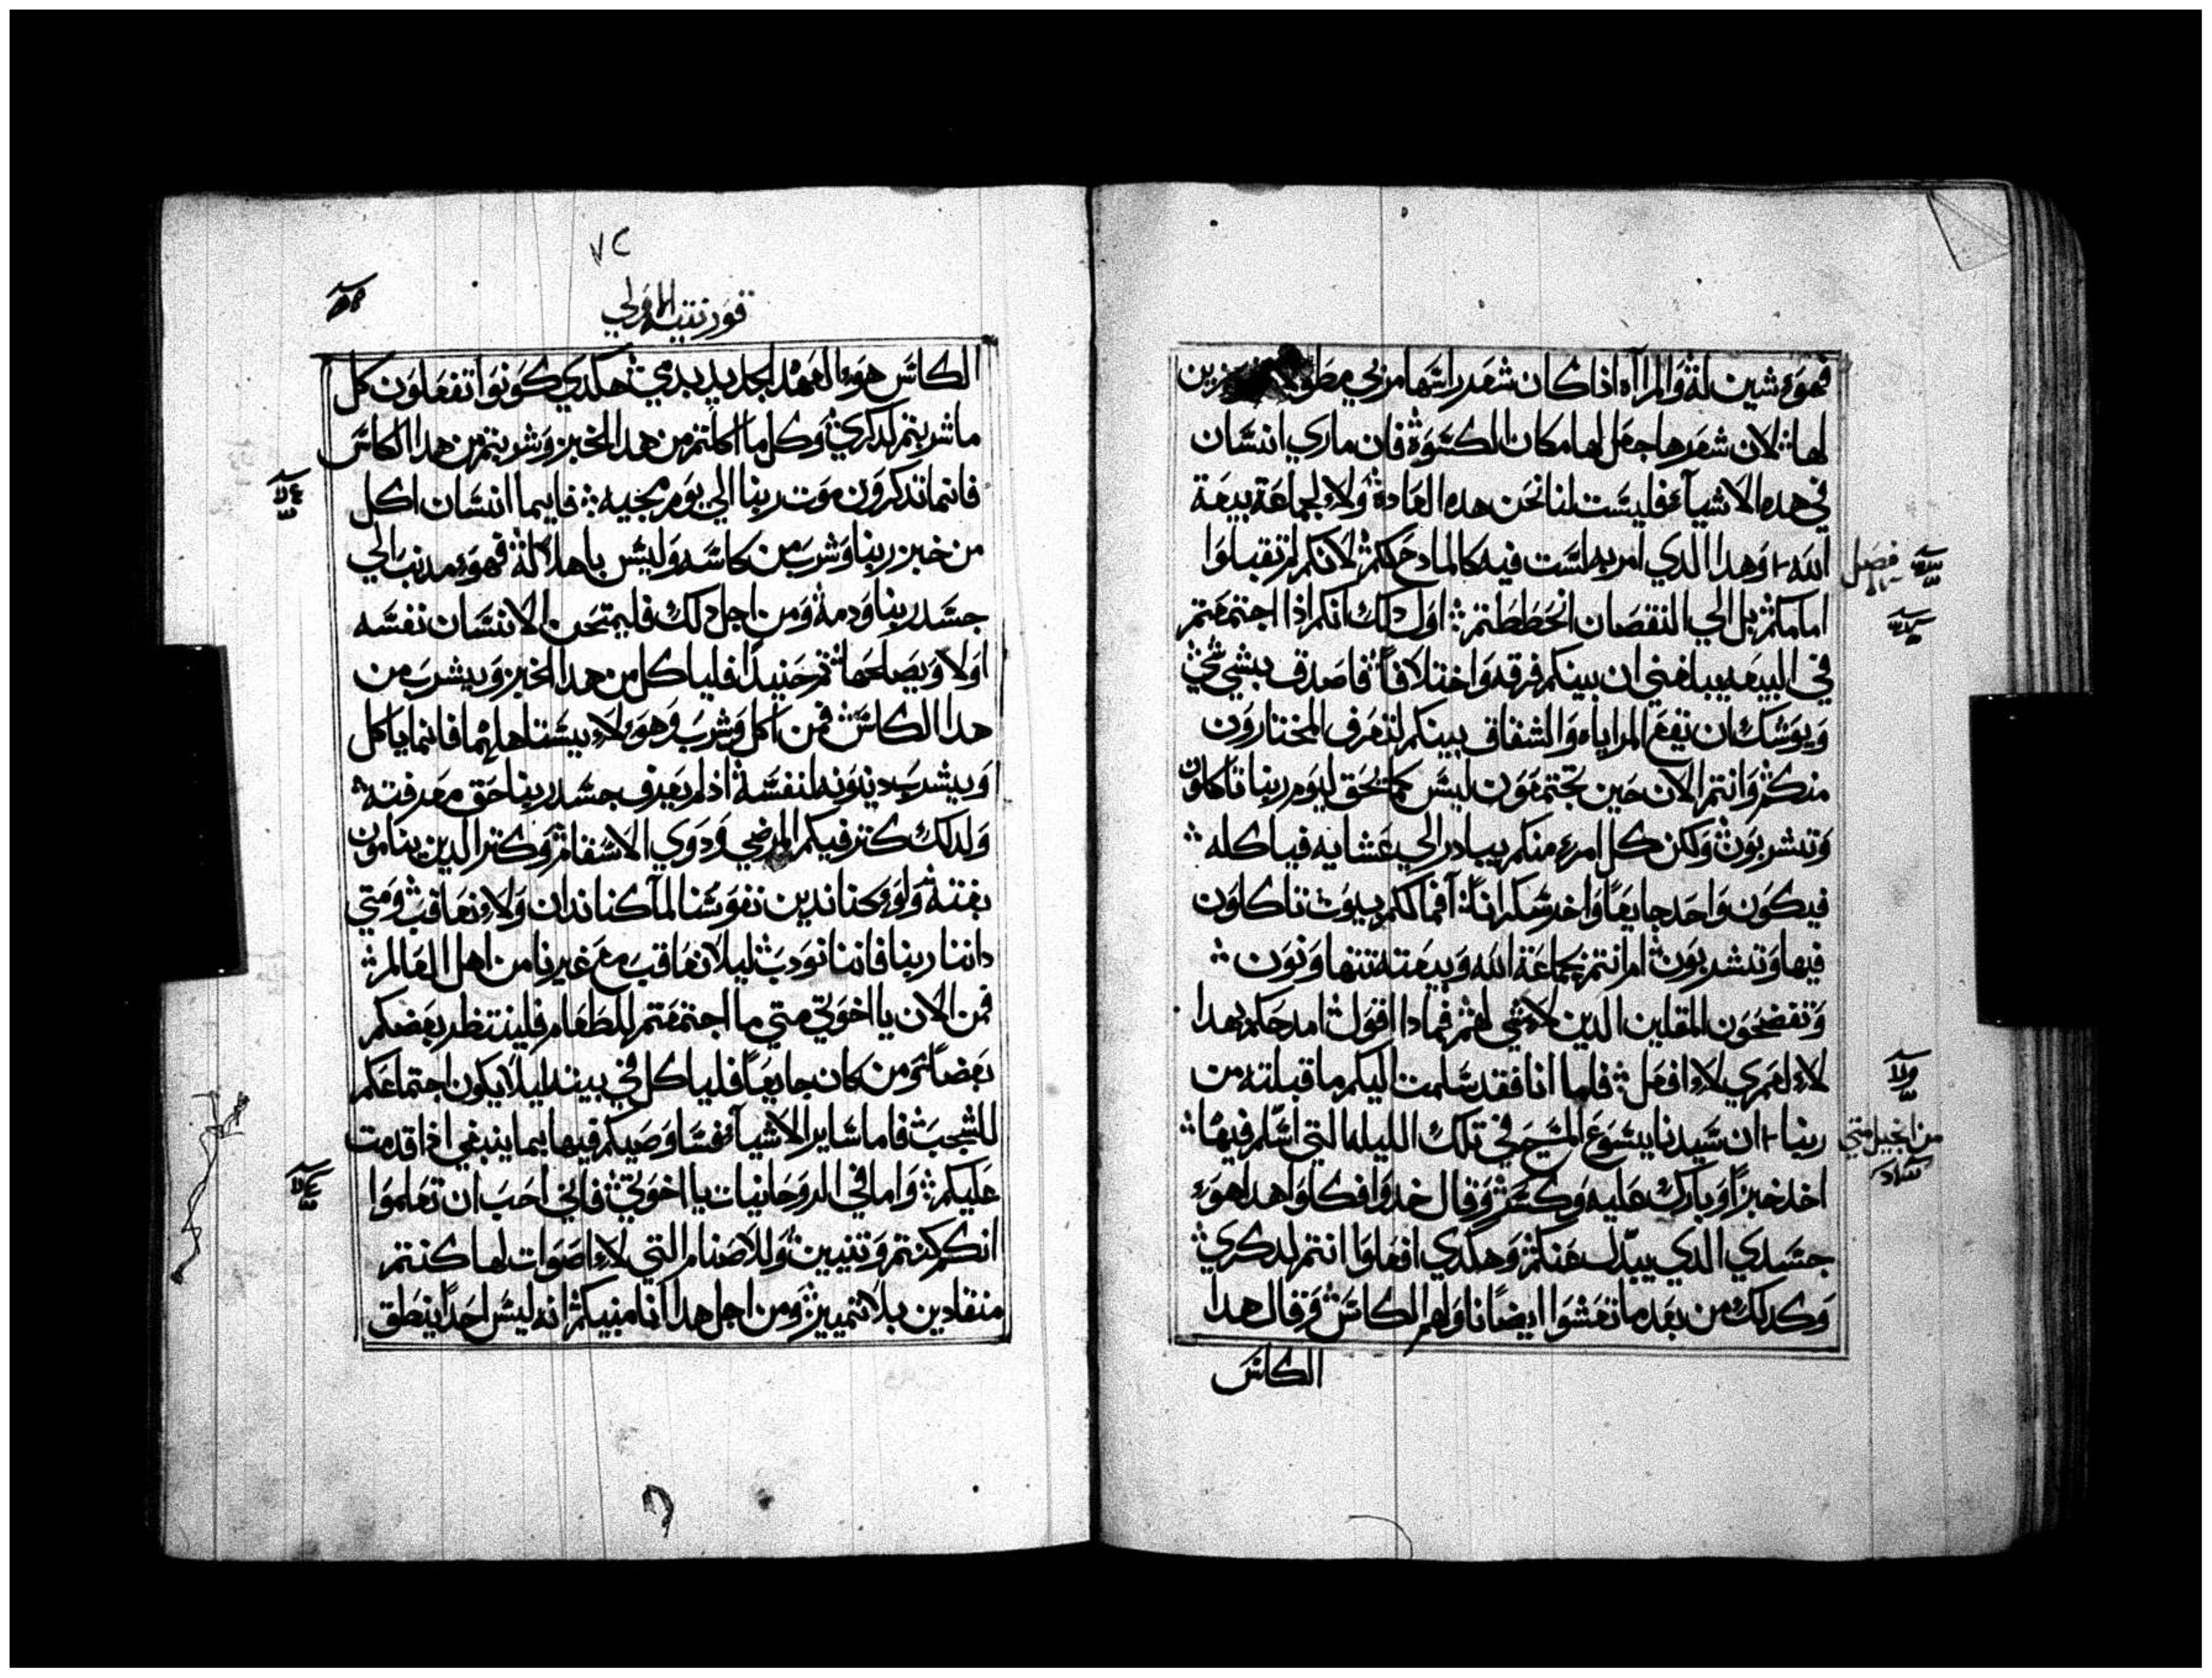 فهوَء شين لهُ وَالمرأه اذا كان شعر راسَها مربي مطوّلا زين
لها لان شعرها جعَل لها مكان الكسَوَة فان ماري انسَان
في هده الاشيآء فليسَت لنا نحن هده العَادة وَلاء لجماعَة بيعَة
فصل
الله وَهدا الدي امر به لسَت فيه كالمادح لكم لانكم لم تقبلوَا
امامكم بل الي النقصَان انحَططتم اوَل دلك انكم اذا اجتمعَتم
في البيعَه يبلغني ان بينكم فرقه وَاختلافاً فاصَدق بشي شي
وَيوَشك ان تقع المراياه وَالشقاق بينكم لتعرف المختارَون
منكم وَانتم الان حَين تجتمعَوَن ليسَ كما يحق ليوَم ربنا تاكلوَن
وَتشربوَن وَلكن كل امرء منكم يبادر الي عَشايه فياكله
فيكوَن وَاحَد جايعَاً وَاخر سَكراناً افما لكم بيوَت تاكلوَن
فيها وَتشربوَن ام انتم بجماعَة الله وَبيعَته تتهاوَنوَن
وَتفضحَوَن المقلين الدين لاء شي لهم فمادا اقوَل امدحَكم بهدا
لاء لعَمري لاء افعَل فلما انا فقد سَلمت اليكم ما قبلته من
من انجيل متي
ربنا ان سَيدنا يسَوَع المسَيح في تلك الليله التي اسَلم فيها
اخد خبزاً وَبارك عَليه وَكسَر وَقال خدوَا فكلوَا هدا هوَء
جسَدي الدي يبدّل عَنكم وَهكدي افعَلوَا انتم لدكري
وَكدلك من بعَد ما تعَشوَا ايضاً ناوَلهم الكاسَ وَقال هدا
الكاسَ
٧٢
قوَرنتيه الاوَلي
الكاسَ هوَء العَهد الجديد بدمي هكدي كوَنوَا تفعَلوَن كل
ما شربتم لدكري وَكل ما اكلتم من هدا الخبز وَشربتم من هدا الكاسَ
فانما تدكروَن موَت ربنا الي يوَم مجيه فايما انسَان اكل
من خبز ربنا وَشرب من كاسَه وَليسَ باهلاً لهُ فهوَء مدنب الي
جسَد ربنا وَدمه وَمن اجل دلك فليمتحَن الانسَان نفسَه
اوَلاً وَيصَلحَها ثم حَنيداً فلياكل من هدا الخبز وَيشرب من
هدا الكاسَ فمن اكل وَشرب وَهوَء لاء يسَتاهلهما فانما ياكل
وَيشرب دينوَنه لنفسَه اذ لم يعَرف جسَد ربنا حَق معَرفته
وَلدلك كتر فيكم المرضي وَدوَي الاسَقام وَكتر الدين ينامون
بغتة وَلوَء كنا ندين نفوَسَنا لما كنا ندان وَلاء نعَاقب وَمتي
داننا ربنا فاننا نوَدب ليلا نعَاقب مع غيرنا من اهل العَالم
فمن الان يا اخوَتي متي ما اجتمعَتم للطعَام فلينتظر بعَضكم
بعَضاً وَمن كان جايعَاً فلياكل في بيته ليلا يكوَن اجتماعَكم
للشجب فاما سَاير الاشيآء فسَاوَصَيكم فيها بما ينبغي اذا قدمت
عَليكم وَاما في الروَحَانيات يا اخوَتي فاني احَب ان تعَلموَا
انكم كنتم وَتنيين وَللاصَنام التي لاء اصَوَات لها كنتم
منقادين بلا تمييز وَمن اجل هدا انا منبيكم انه ليسَ احَداً ينطق